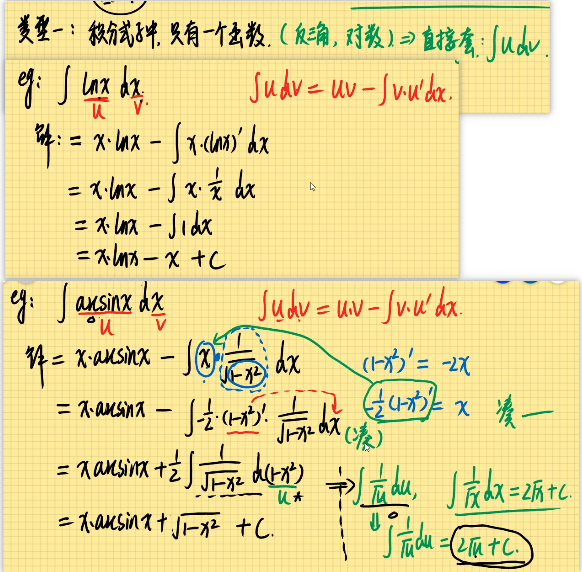 类型一：积分式子中，只有一个函数．（反三角，对数）⇒ 直接套：∫udv．
eg: ∫ lnx dx. ∫udv = uv − ∫v·u'dx.
u v
解：= x·lnx − ∫x·(lnx)'dx
= x·lnx − ∫x·1/x dx
= x·lnx − ∫1dx
= x·lnx − x + C
eg: ∫ arcsinx dx ∫udv = u·v − ∫v·u'dx.
u v
解 = x·arcsinx − ∫x·1/√(1−x²) dx (1−x²)' = −2x
= x·arcsinx − ∫−1/2·(1−x²)'·1/√(1−x²) dx (凑) −1/2(1−x²)' = x 凑一
= x arcsinx + 1/2∫1/√(1−x²) d(1−x²) ⇒ ∫1/√u du, ∫1/√x dx = 2√x + C
u *
= x·arcsinx + √(1−x²) + C. ⇓ ∫1/√u du = 2√u + C.